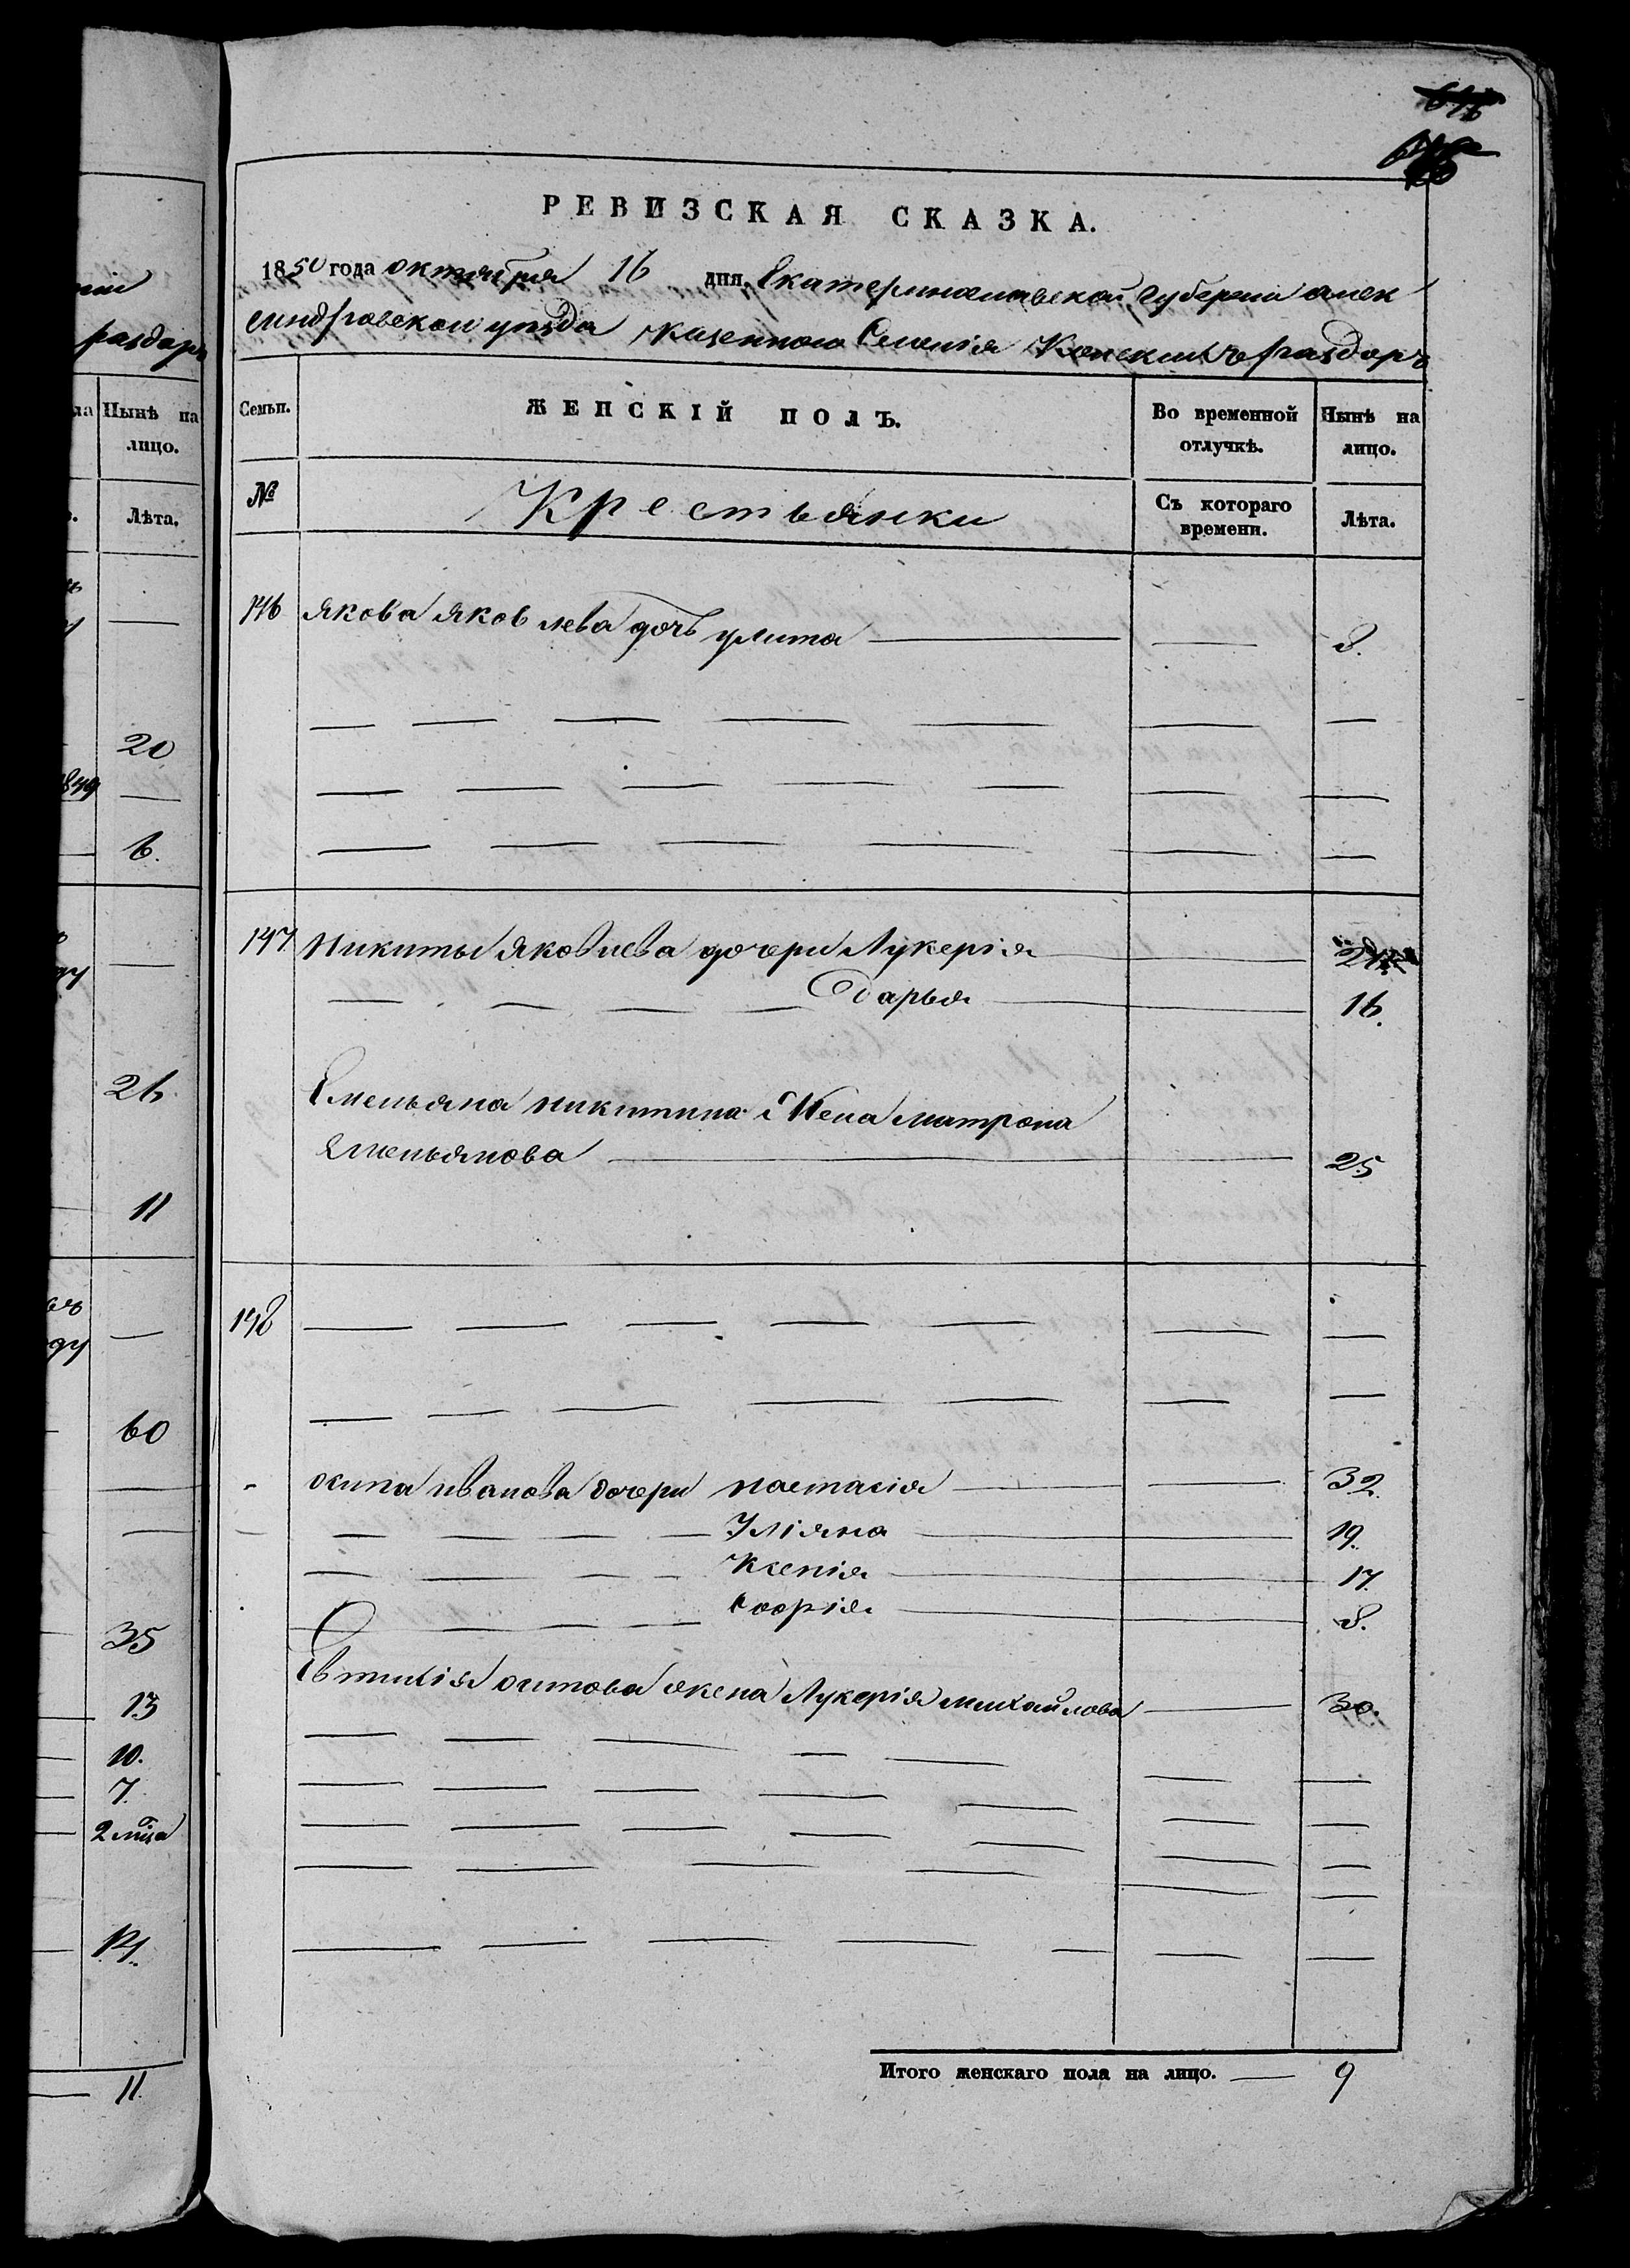 РЕВИЗСКАЯ СКАЗКА.
1850 года октября 16 дня. Екатеринославской губернии алек
сандровскои уезда казенного Селенія Конскихъ раздоръ
Семьи. ЖЕНСКІЙ ПОЛЪ. Во временной отлучкѣ. Нынѣ на лицо.
№ Крестьянки Съ котораго времени. Лѣта.
146 якова яковлева дочь улита 8.
147 Никиты яковлева дочери Лукерія
Дарья 16.
Емельяна никитина Жена матрона
емельянова 25
148
осипа иванова дочери настасія 32.
Уліяна 19.
Ксенія 17.
Софія 8.
Евтихія осипова жена Лукерія михайлова 30.
Итого женскаго пола на лицо. 9
раздоръ
Нынѣ на
лицо.
Лѣта.
20
1849
6.
26
11
60
35
13
10.
7.
2 мца
14.
11.